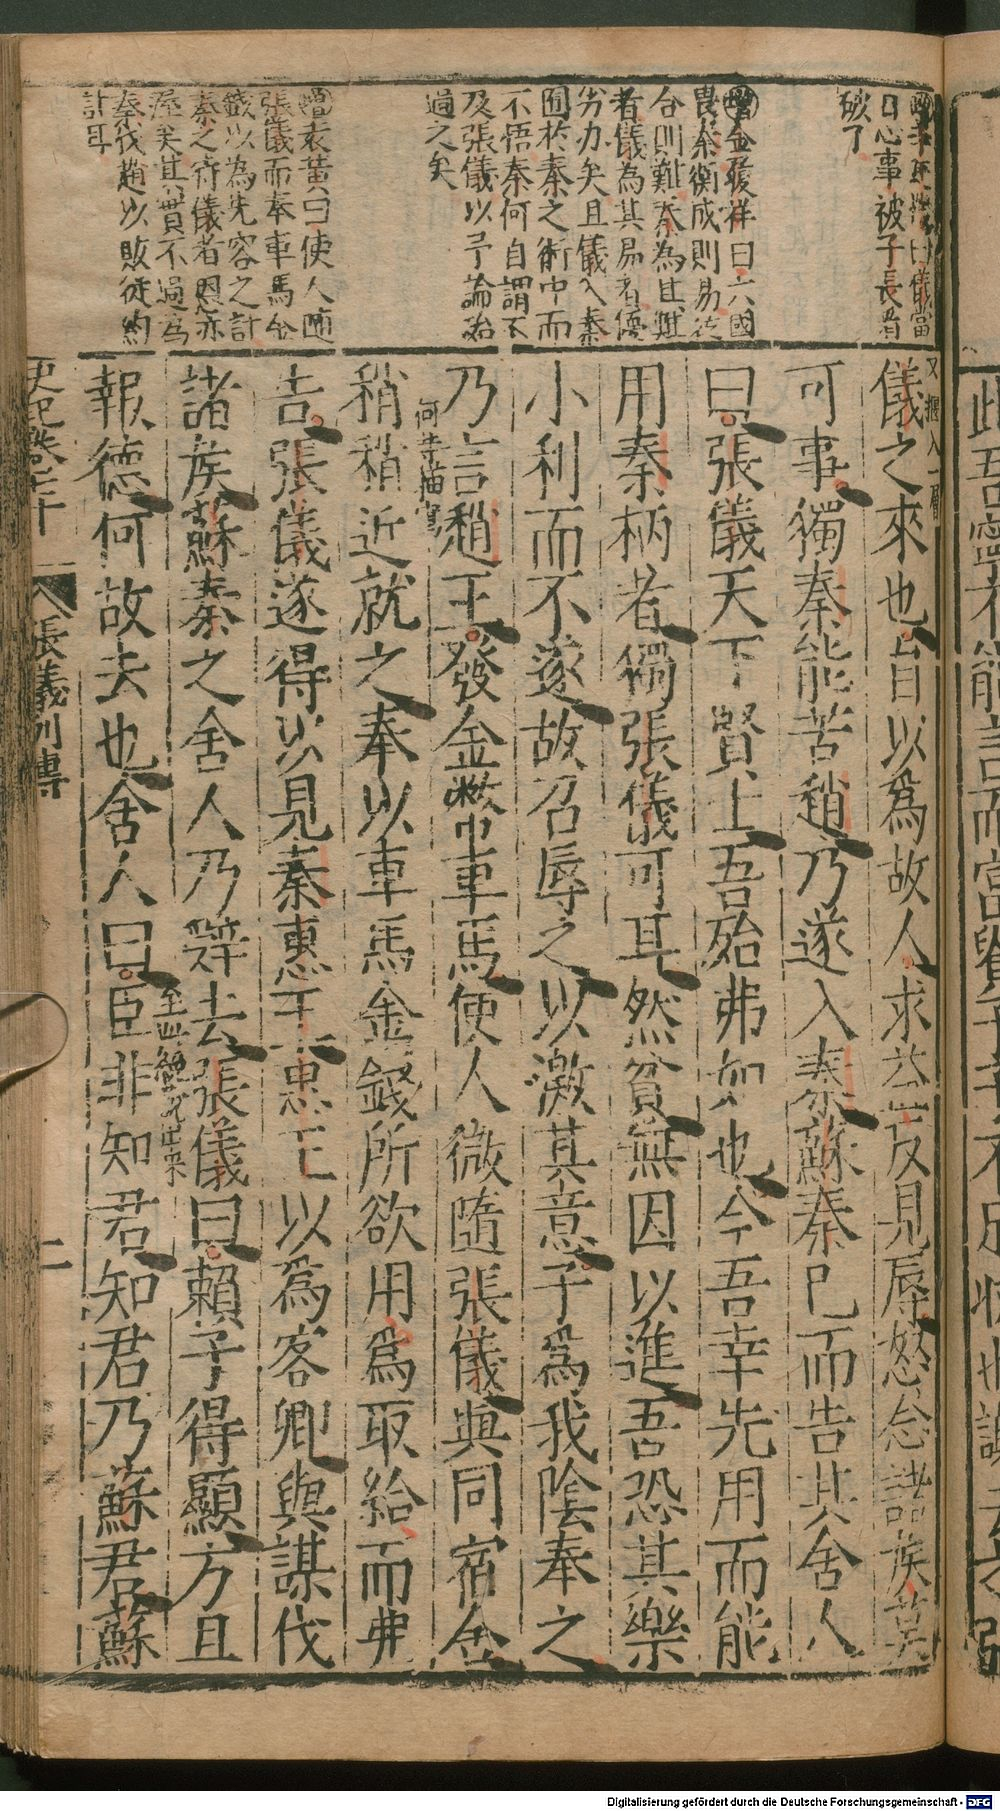 日心事被子長看
破了
增金履祥曰六國
畏秦衡成則易從
合則難秦為其難
者儀為其易者優
劣办矣且儀入秦
囿於秦之術中而
不悟秦何自謂不
及張儀以予論治
過之矣
增表黃曰使人随
張儀而奉車馬金
錢以為先容之計
秦之術儀者恩亦
渥矣其實不過為
秦伐趙以敗從約
計耳
儀之來也自以爲故人求益反見辱怒念諸侯莫
可事獨秦能苦趙乃遂入秦蘇秦已而告其舍人
曰張儀天下賢士吾殆弗如也今吾幸先用而能
用秦柄者獨張儀可耳然貧無因以進吾恐其樂
小利而不遂故召辱之以激其意子爲我陰奉之
乃言趙王發金幣車馬使人微隨張儀與同宿舍
何等描寫
稍稍近就之奉以車馬金錢所欲用爲取給而弗
告張儀遂得以見秦惠王惠王以爲客卿與謀伐
諸侯蘇秦之舍人乃辭去張儀曰賴子得顯方且
報德何故去也舍人曰臣非知君知君乃蘇君蘇
史記卷七十
張儀列傳
二
Digitalisierung gefördert durch die Deutsche Forschungsgemeinschaft - DFG